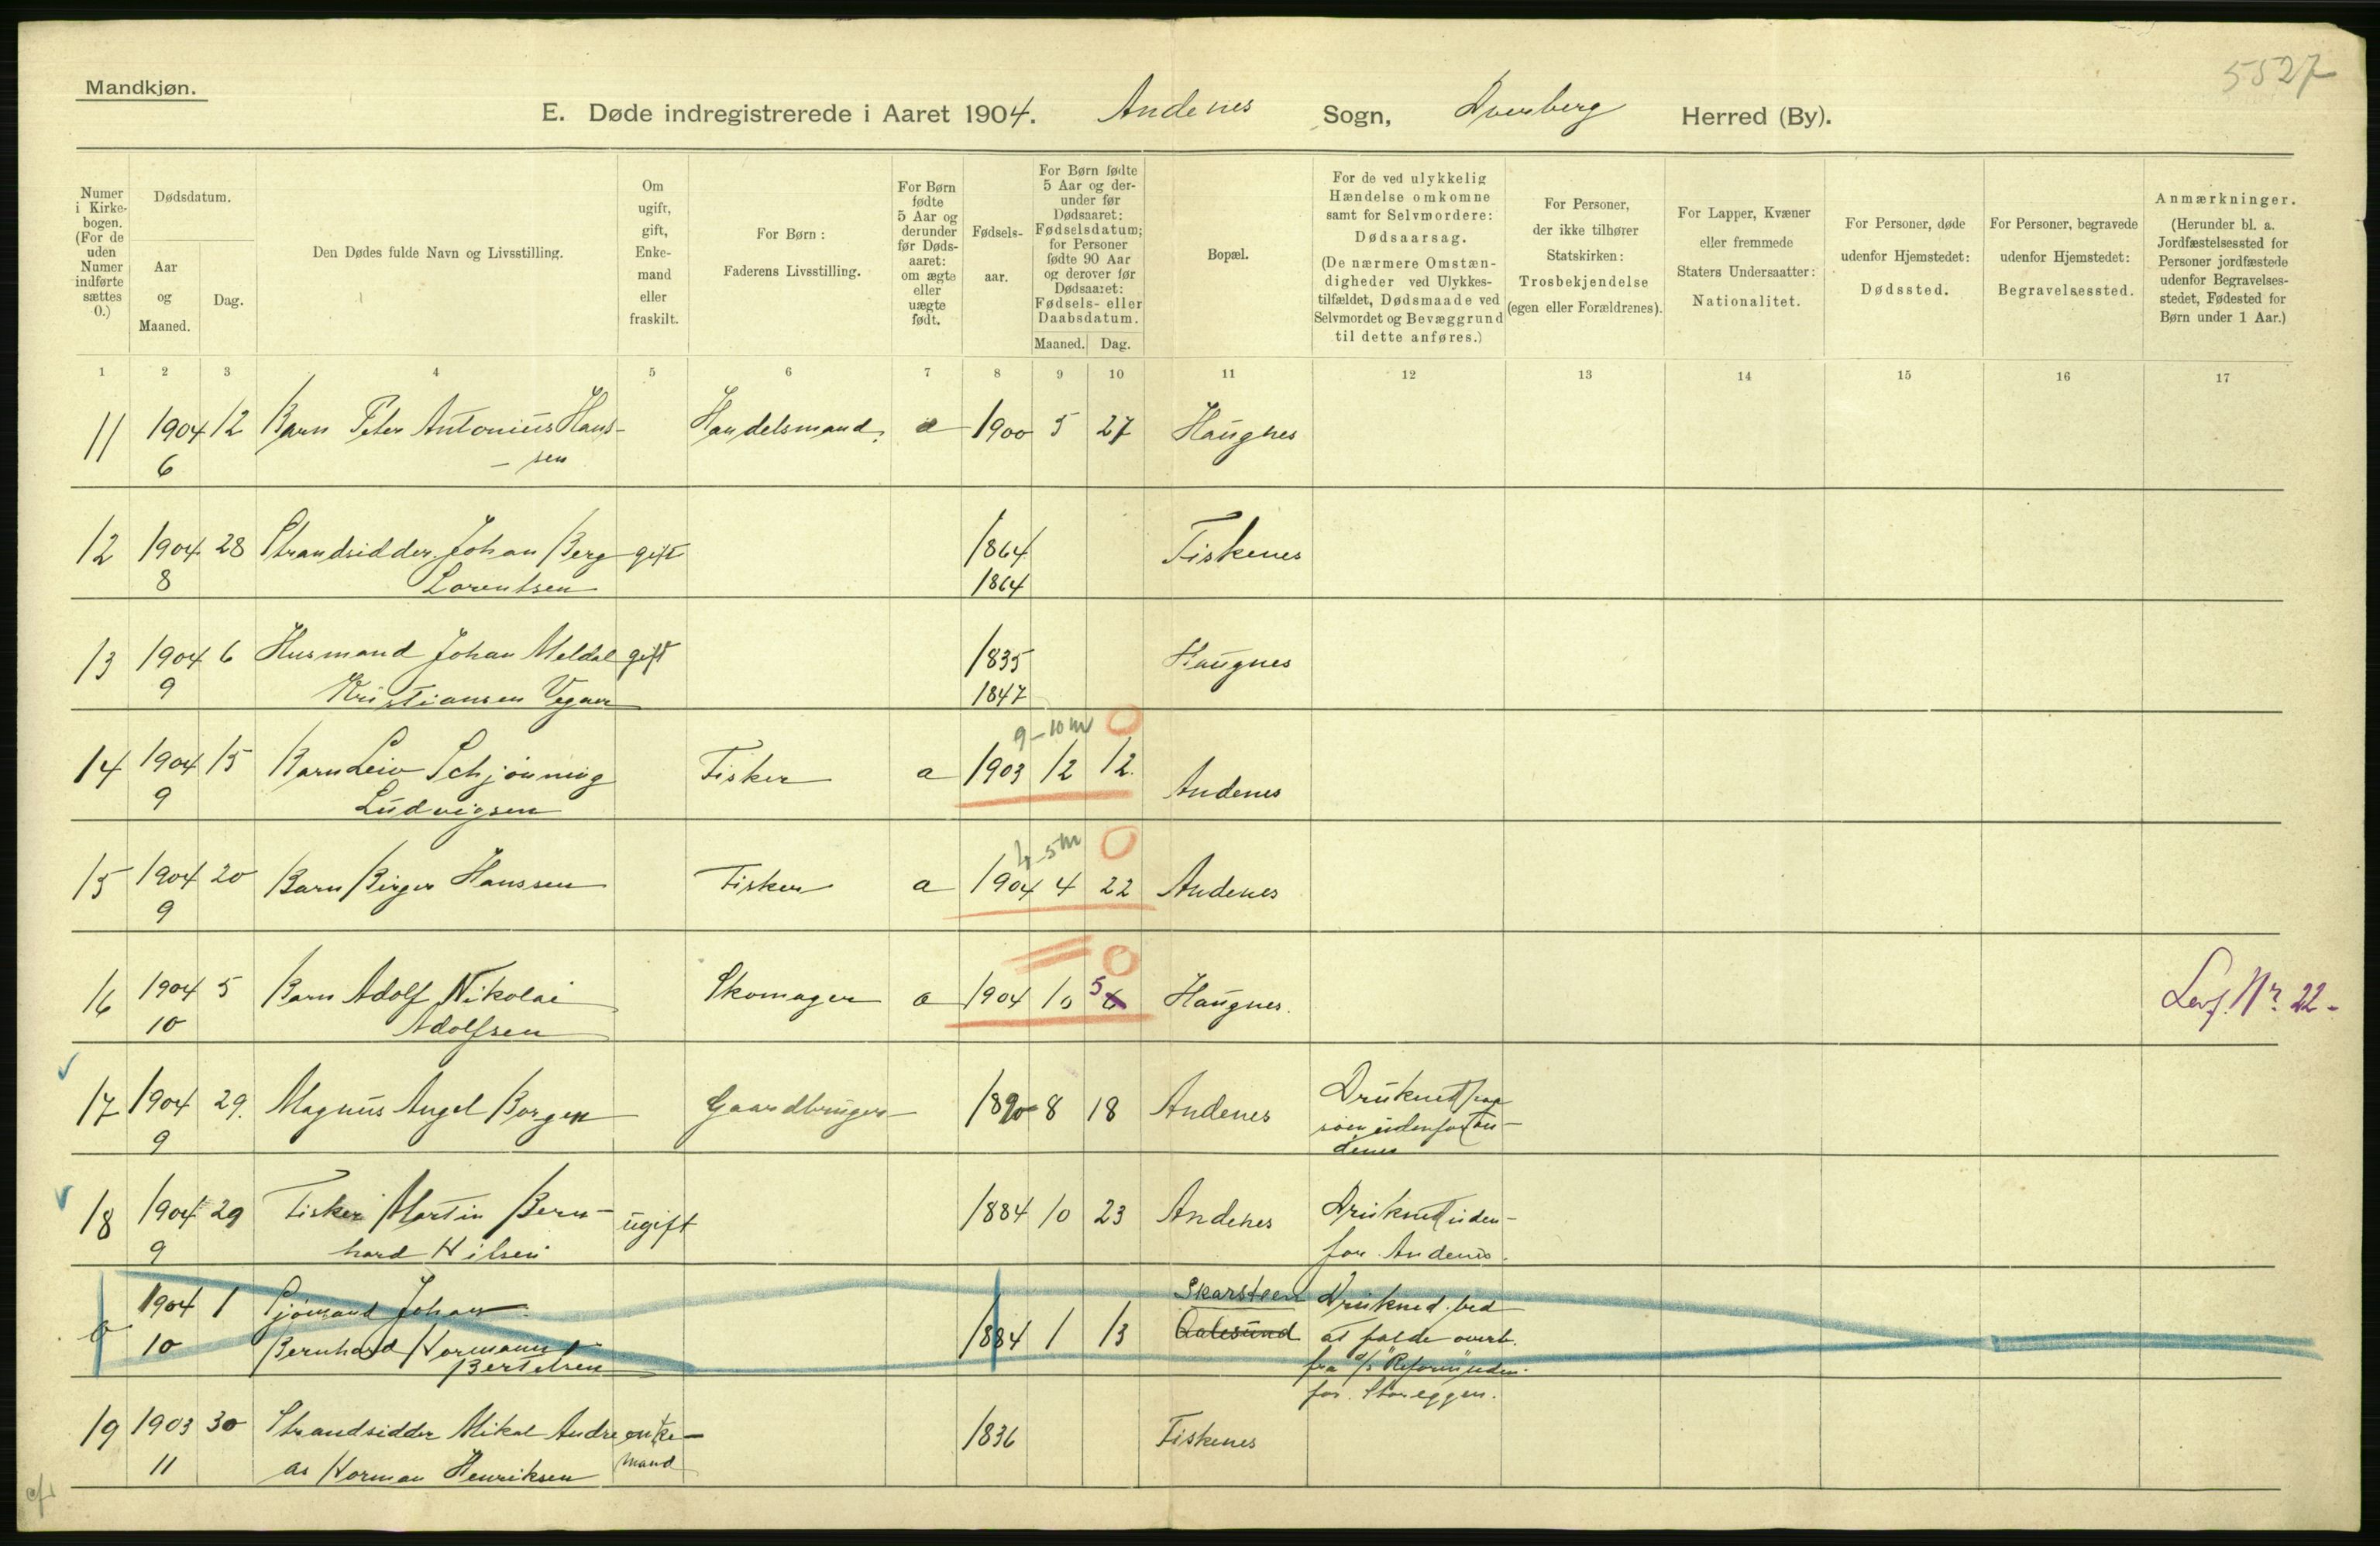 5527
Mandkjøn.
E. Døde indregistrerede i Aaret 1904. Andenes Sogn, Dverberg Herred (By).
Numer i Kirke-bogen. (For de uden Numer indførte sættes 0.)
Dødsdatum.
Aar og Maaned.
Dag.
Den Dødes fulde Navn og Livsstilling.
Om ugift, gift, Enke-mand eller fraskilt.
For Børn: Faderens Livsstilling.
For Børn fødte 5 Aar og derunder før Døds-aaret: om ægte eller uægte født.
Fødsels-aar.
For Børn fødte 5 Aar og der-under før Dødsaaret: Fødselsdatum; for Personer fødte 90 Aar og derover før Dødsaaret: Fødsels- eller Daabsdatum.
Maaned. Dag.
Bopæl.
For de ved ulykkelig Hændelse omkomne samt for Selvmordere: Dødsaarsag. (De nærmere Omstæn-digheder ved Ulykkes-tilfældet, Dødsmaade ved Selvmordet og Bevæggrund til dette anføres.)
For Personer, der ikke tilhører Statskirken: Trosbekjendelse (egen eller Forældrenes).
For Lapper, Kvæner eller fremmede Staters Undersaatter: Nationalitet.
For Personer, døde udenfor Hjemstedet: Dødssted.
For Personer, begravede udenfor Hjemstedet: Begravelsessted.
Anmærkninger. (Herunder bl. a. Jordfæstelsessted for Personer jordfæstede udenfor Begravelses-stedet, Fødested for Børn under 1 Aar.)
1 2 3 4 5 6 7 8 9 10 11 12 13 14 15 16 17
11 1904 12 Barn Peter Antonius Hans- Handelsmand. a 1900 5 27 Haugnes
6 - sen
12 1904 28 Strandsidder Johan Berg gift 1864 Fiskenes
8 Lorentsen 1864
13 1904 6 Husmand Johan Meldal gift 1835 Haugnes
9 Kristiansen Vegner 1847
9-10 m 0
14 1904 15 Barn Leiv Schjønning Fisker a 1903 12 12. Andenes
9 Ludvigsen
4-5 m 0
15 1904 20 Barn Birger Hanssen Fisker a 1904 4 22 Andenes
9
0
16 1904 5 Barn Adolf Nikolai Skomager a 1904 10 5 6 Haugnes. Levf. Nr. 22-
10 Adolfsen
17 1904 29. Magnus Angel Borgen Gaardbruger 1890 8 18 Andenes Druknet paa
9 søen udenfor An-
denes
18 1904 29 Fisker Martin Bern- ugift 1884 10 23 Andenes Druknet uden-
9 hard Nilsen for Andenes.
0 1904 1 Sjømand Johan Skarsteen Drukned ved
10 Bernhard Normann 1884 1 13 Aalesund at falde overb.
Bertelsen fra d/s "Reform" uden-
for Storeggen.
19 1903 30 Strandsidder Mikal Andre enke- 1836 Fiskenes
11 as Norman Henriksen mand